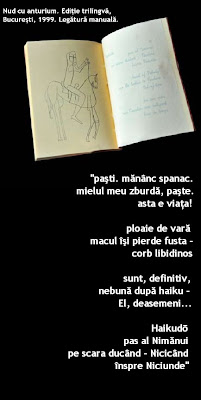 Nud cu anturium. Ediţie trilingvă,
Bucureşti, 1999. Legătură manuală.
"paşti. mănânc spanac.
mielul meu zburdă, paşte.
asta e viaţa!
ploaie de vară
macul îşi pierde fusta -
corb libidinos
sunt, definitiv,
nebună după haiku -
El, deasemeni...
Haikudō
pas al Nimănui
pe scara ducând - Nicicând
înspre Niciunde"